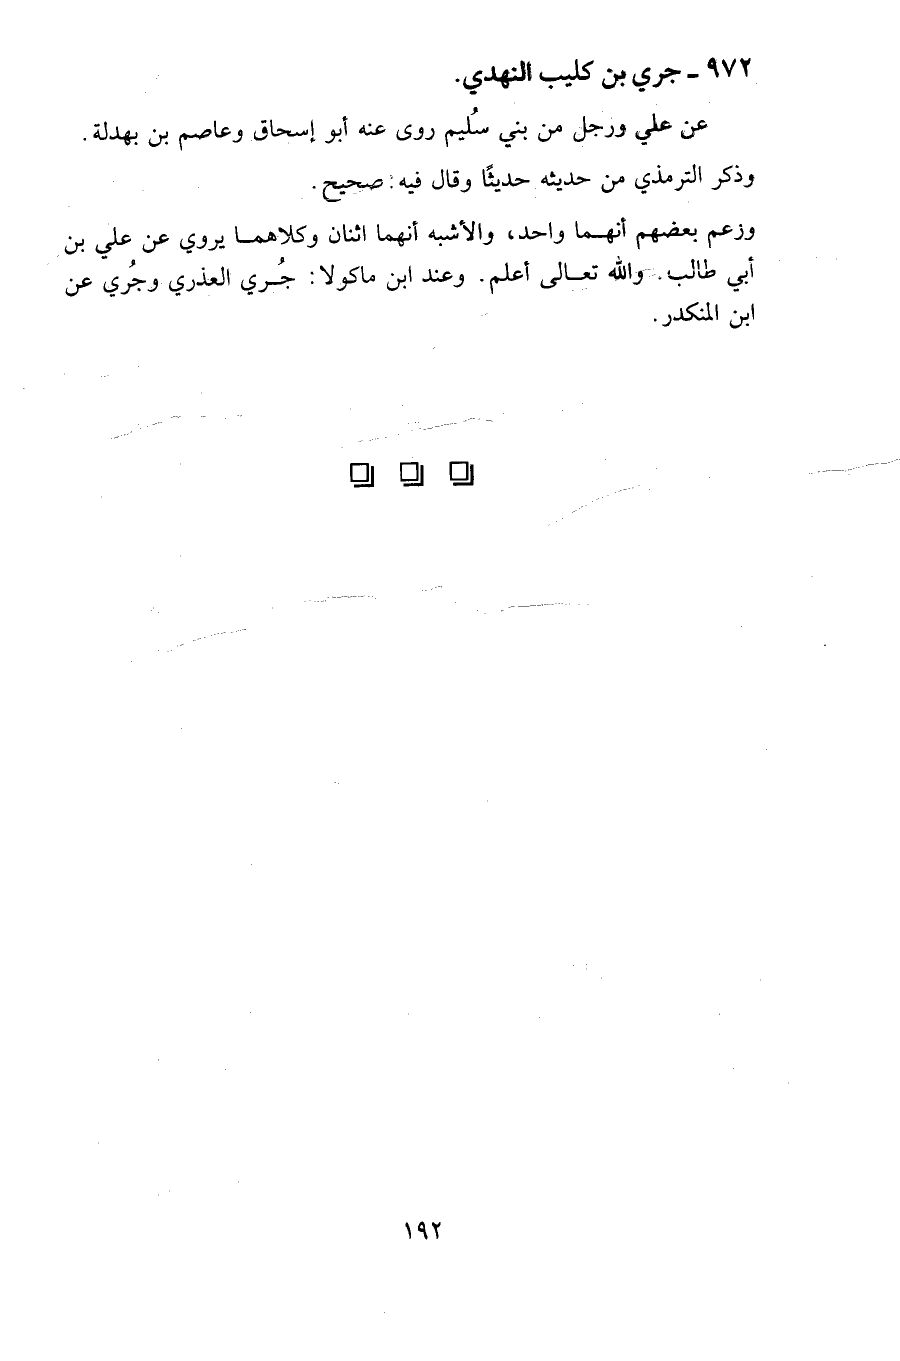 ٩٧٢ - جري بن كليب النهدي.
عن علي ورجل من بني سُليم روى عنه أبو إسحاق وعاصم بن بهدلة.
وذكر الترمذي من حديثه حديثًا وقال فيه: صحيح.
وزعم بعضهم أنهـما واحد، والأشبه أنهما اثنان وكلاهمـا يروي عن علي بن
أبي طالب. والله تعـالى أعلم. وعند ابن ماكولا: جُـري العذري وجُري عن
ابن المنكدر.
١٩٢